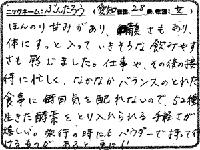 ニックネーム:ぶんたろう (愛知県 28歳 女)
ほんのり甘みがあり、酸味さもあり、
体にすっと入っていきそうな飲みやす
さも感じました。仕事や、その後の接
待に忙しく、なかなかバランスのとれた
食事に毎回気を配れないので、52種
生きた酵素をとり入れられる手軽さが
嬉しい。旅行の時にもパウダーで持って行
けるのが